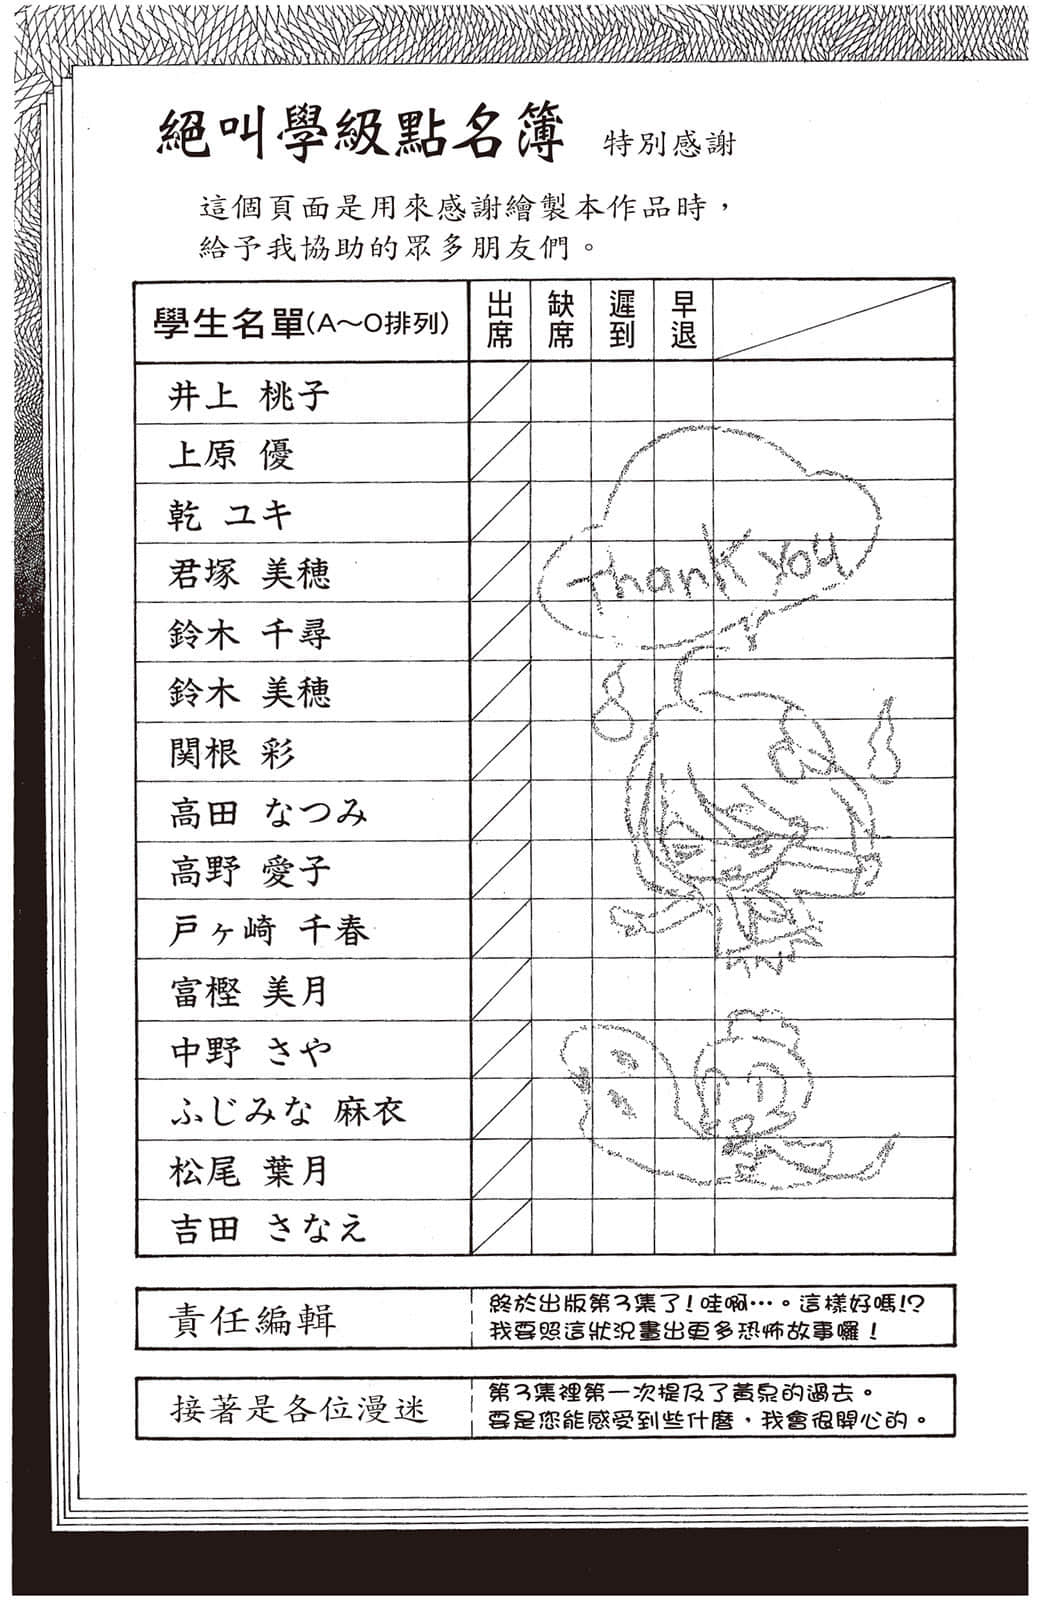 絕叫學級點名簿 特別感謝
這個頁面是用來感謝繪製本作品時，
給予我協助的眾多朋友們。
學生名單(A～O排列) 出席 缺席 遲到 早退
井上 桃子
上原 優
乾 ユキ
君塚 美穂
鈴木 千尋
鈴木 美穂
関根 彩
高田 なつみ
高野 愛子
戸ヶ崎 千春
富樫 美月
中野 さや
ふじみな 麻衣
松尾 葉月
吉田 さなえ
Thank you
責任編輯
終於出版第3集了！哇啊…。這樣好嗎!?
我要照這狀況畫出更多恐怖故事囉！
接著是各位漫迷
第3集裡第一次提及了黃泉的過去。
要是您能感受到些什麼，我會很開心的。